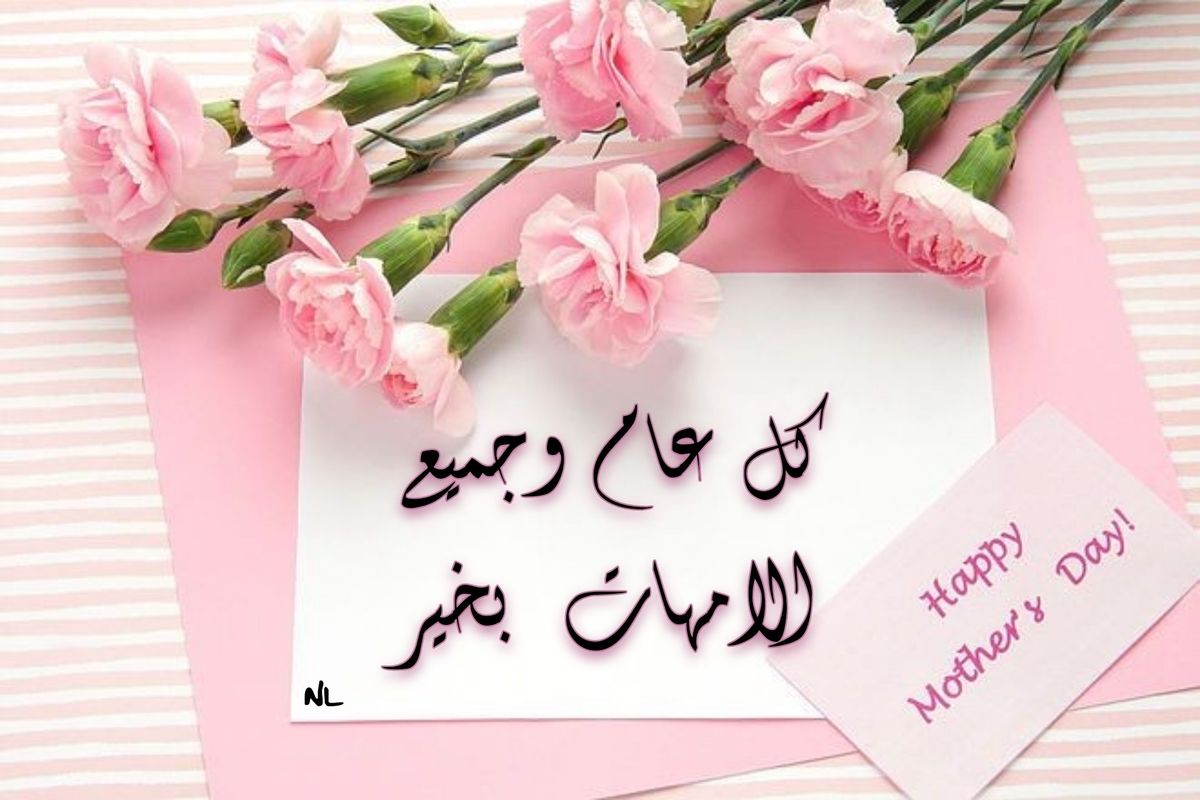 كل عام وجميع
الامهات بخير
Happy
Mother's Day!
NL